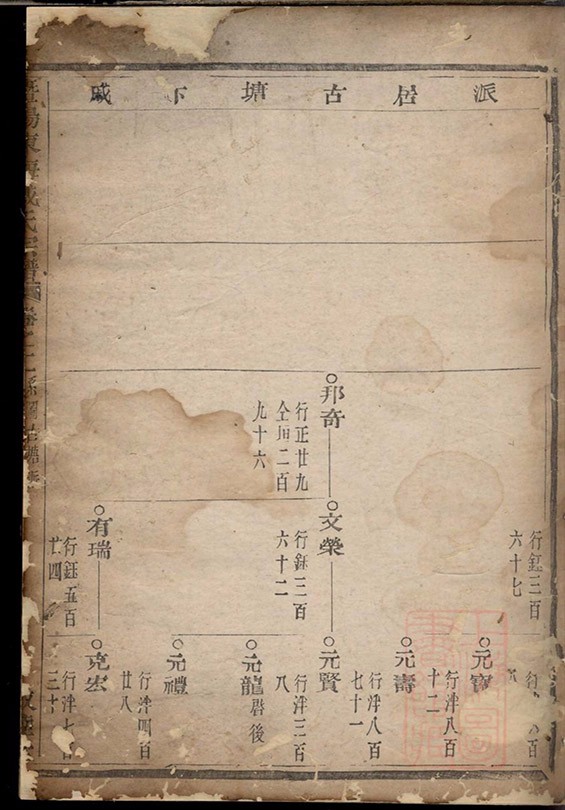 派居古塘下戚
行鈺三百
六十七
元寶
行津八百
十二
元壽
行津八百
七十一
邦奇
行正廿九
仝垣二百
九十六
文榮
行鈺三百
六十二
元賢
行津三百
八
元龍
居後
元禮
行津四百
廿八
有瑞
行鈺五百
廿四
克宏
行津七百
三十